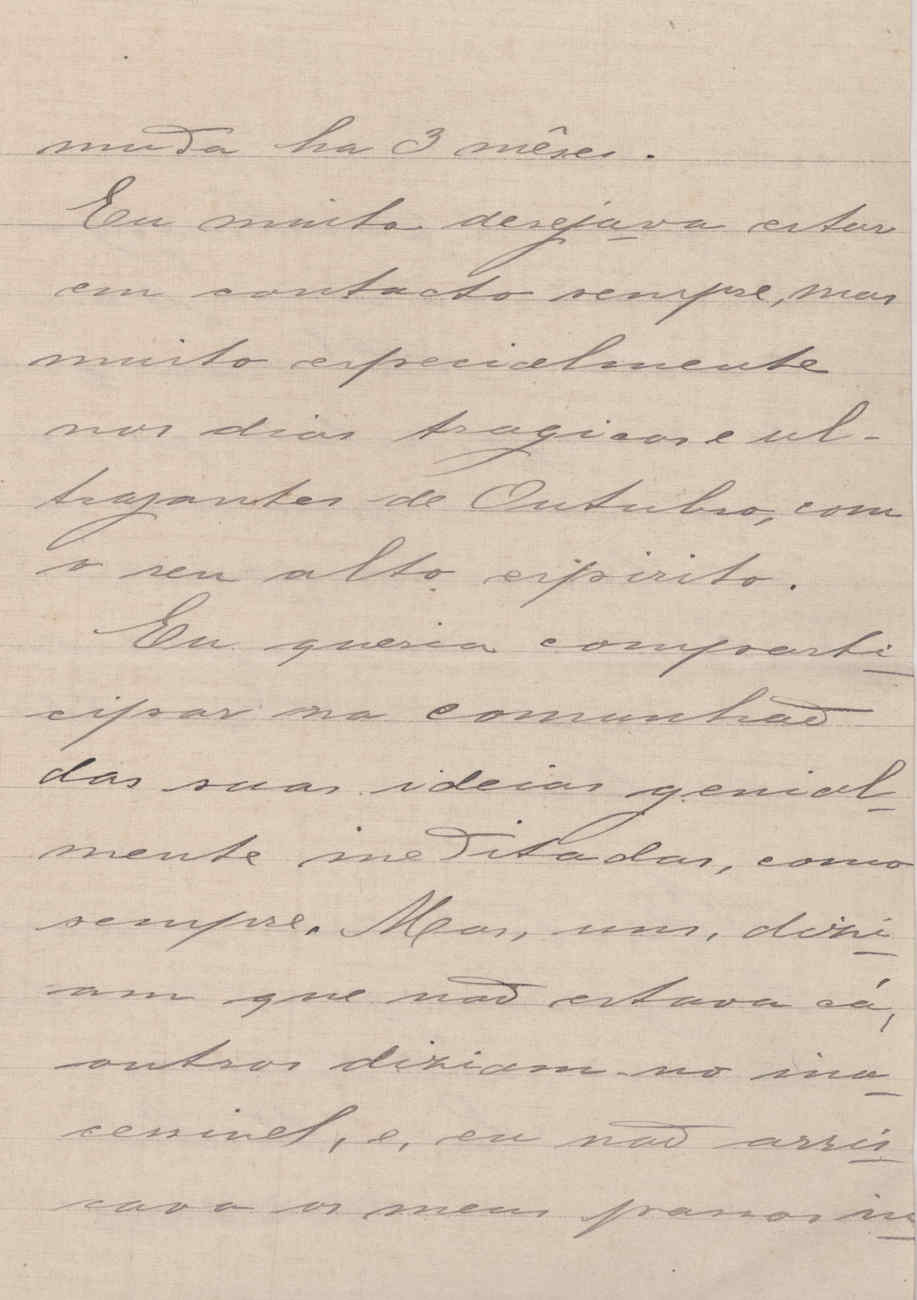 muda ha 3 mêses.
Eu muito desejava estar
em contacto sempre, mas
muito especialmente
nos dias tragicos e ul-
trajantes de Outubro, com
o seu alto espirito.
Eu queria comparti-
cipar na comunhaõ
das suas ideias genial-
mente meditadas, como
sempre. Mas, uns, dizi-
am que naõ estava cá,
outros diziam-no ina-
cessivel, e, eu naõ arris-
cava os meus passos in-